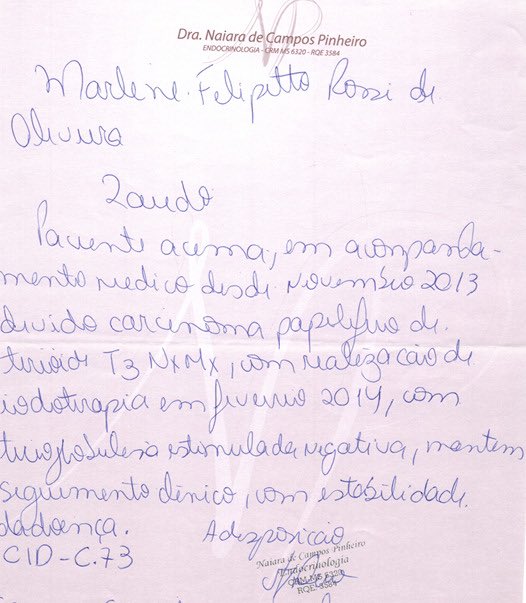 Dra. Naiara de Campos Pinheiro
ENDOCRINOLOGIA - CRM MS 6320 - RQE 3584
Marlene Felipetto Rossi de
Oliveira
Laudo
Paciente acima, em acompanha-
mento medico desde Novembro 2013
devido carcinoma papilifero de
tiroide T3 NxMx, com realização de
iodoterapia em fevereiro 2014, com
tireoglobulina estimulada negativa, mantem
seguimento clinico, com estabilidade
da doença. A disposição
CID-C.73
Naiara de Campos Pinheiro
Endocrinologia
CRM MS 6320
RQE 3584